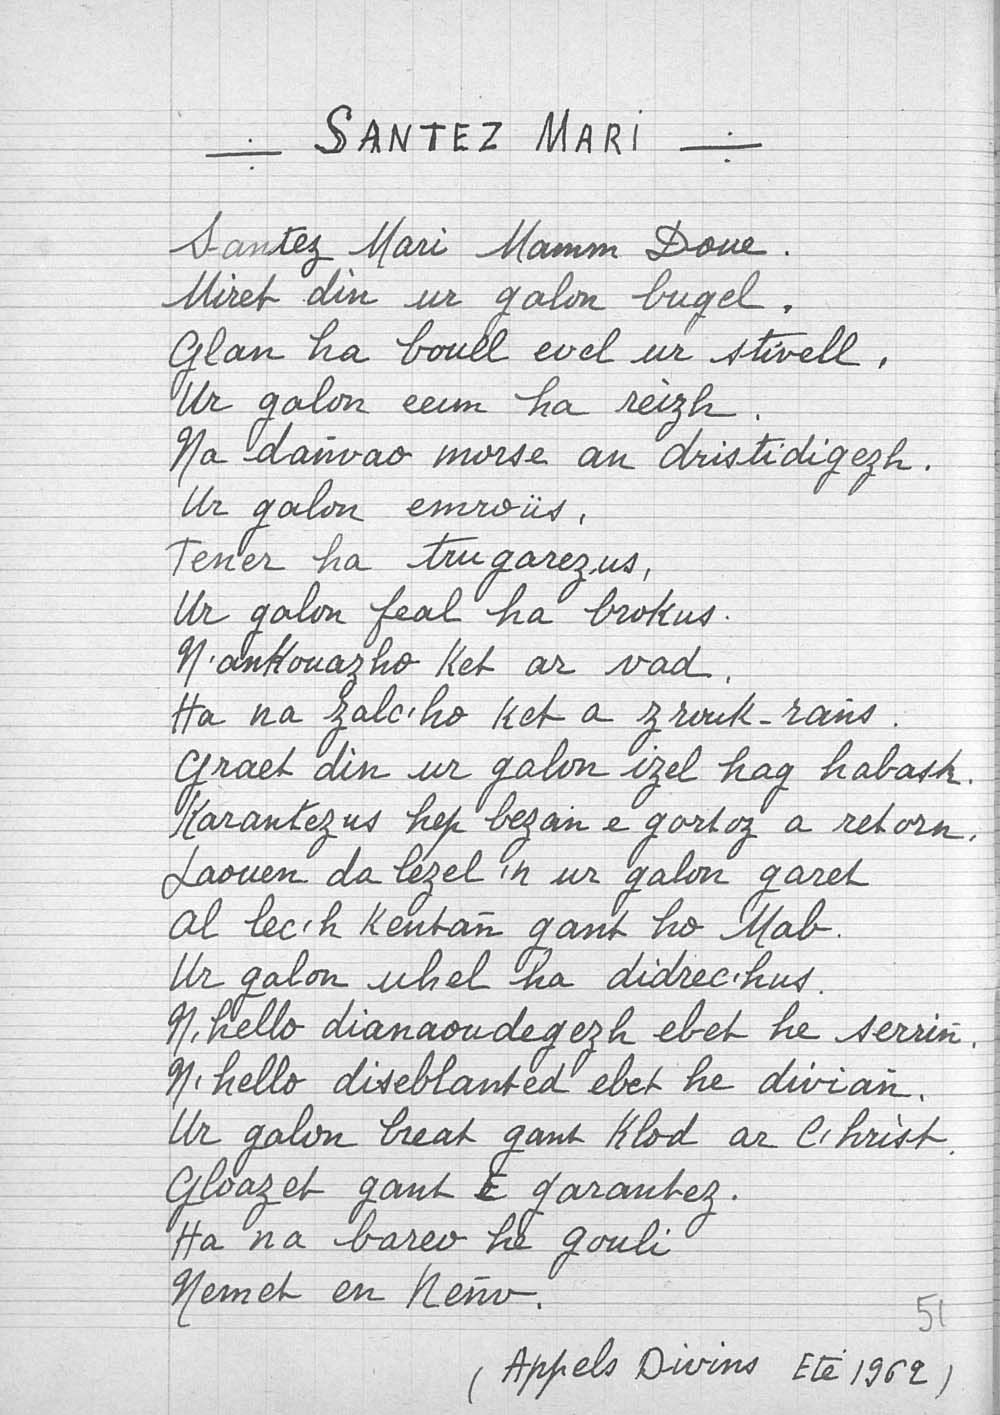 SANTEZ MARI
Santez Mari Mamm Doue.
Miret din ur galon bugel.
Glan ha boull evel ur stivell,
Ur galon eeun ha reizh.
Na dañvao morse an dristidigezh.
Ur galon emroüs,
Tener ha trugarezus,
Ur galon feal ha brokus.
N'ankouazho ket ar vad,
Ha na zalc'ho ket a zrouk-rañs.
Graet din ur galon izel hag habask.
Karantezus hep bezañ e gortoz a retorn,
Laouen da lezel 'n ur galon garet
al lec'h kentañ gant ho Mab.
Ur galon uhel ha didrec'hus.
N'hello dianaoudegezh ebet he serriñ.
N'hello diseblanted ebet he divian.
Ur galon breat gant Klod ar C'hrist.
Gloazet gant E garantez.
Ha na bareo he gouli
Nemet en Neñv.
51
(Appels Divins Eté 1962)